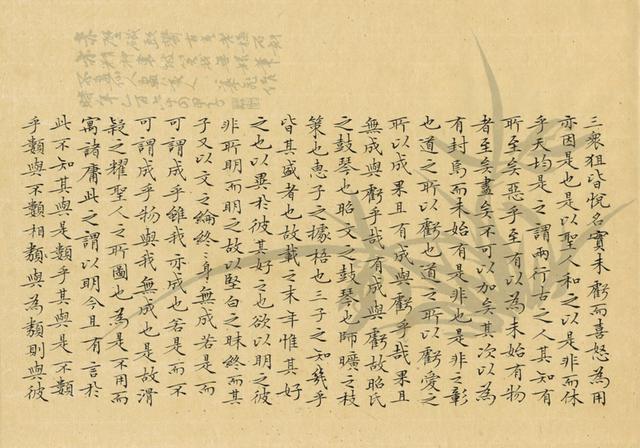 三衆狙皆悅名實未虧而喜怒為用
亦因是也是以聖人和之以是非而休
乎天均是之謂兩行古之人其知有
所至矣惡乎至有以為未始有物
者至矣盡矣不可以加矣其次以為
有封焉而未始有是非也是非之彰
也道之所以虧也道之所以虧愛之
所以成果且有成與虧乎哉果且
無成與虧乎哉有成與虧故昭氏
之鼓琴也昭文之鼓琴也師曠之枝
策也惠子之據梧也三子之知幾乎
皆其盛者也故載之末年惟其好
之也以異於彼其好之也欲以明之彼
非所明而明之故以堅白之昧終而其
子又以文之綸終〻身無成若是而
可謂成乎雖我亦成也若是而不
可謂成乎物與我無成也是故滑
疑之耀聖人之所圖也為是不用而
寓諸庸此之謂以明今且有言於
此不知其與是類乎其與是不類
乎類與不類相類與為類則與彼